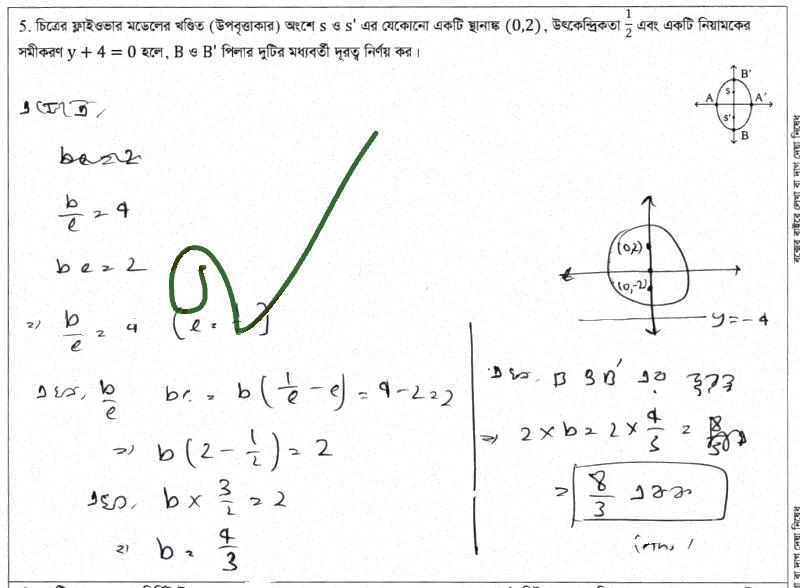 5. চিত্রের ফ্লাইওভার মডেলের খণ্ডিত (উপবৃত্তাকার) অংশে s ও s' এর যেকোনো একটি স্থানাঙ্ক (0,2), উৎকেন্দ্রিকতা 1/2 এবং একটি নিয়ামকের
সমীকরণ y + 4 = 0 হলে, B ও B' পিলার দুটির মধ্যবর্তী দূরত্ব নির্ণয় কর।
B'
s
A A'
s'
B
be = 2
b/e = 4
be = 2
=> b/e = 4
b/e be = b(1/e - e) = 4 - 2 = 2
=> b(2 - 1/2) = 2
b × 3/2 = 2
=> b = 4/3
(0,2)
(0,-2)
y = -4
B ও B' এর
=> 2 × b = 2 × 4/3 = 8/3
= 8/3 একক